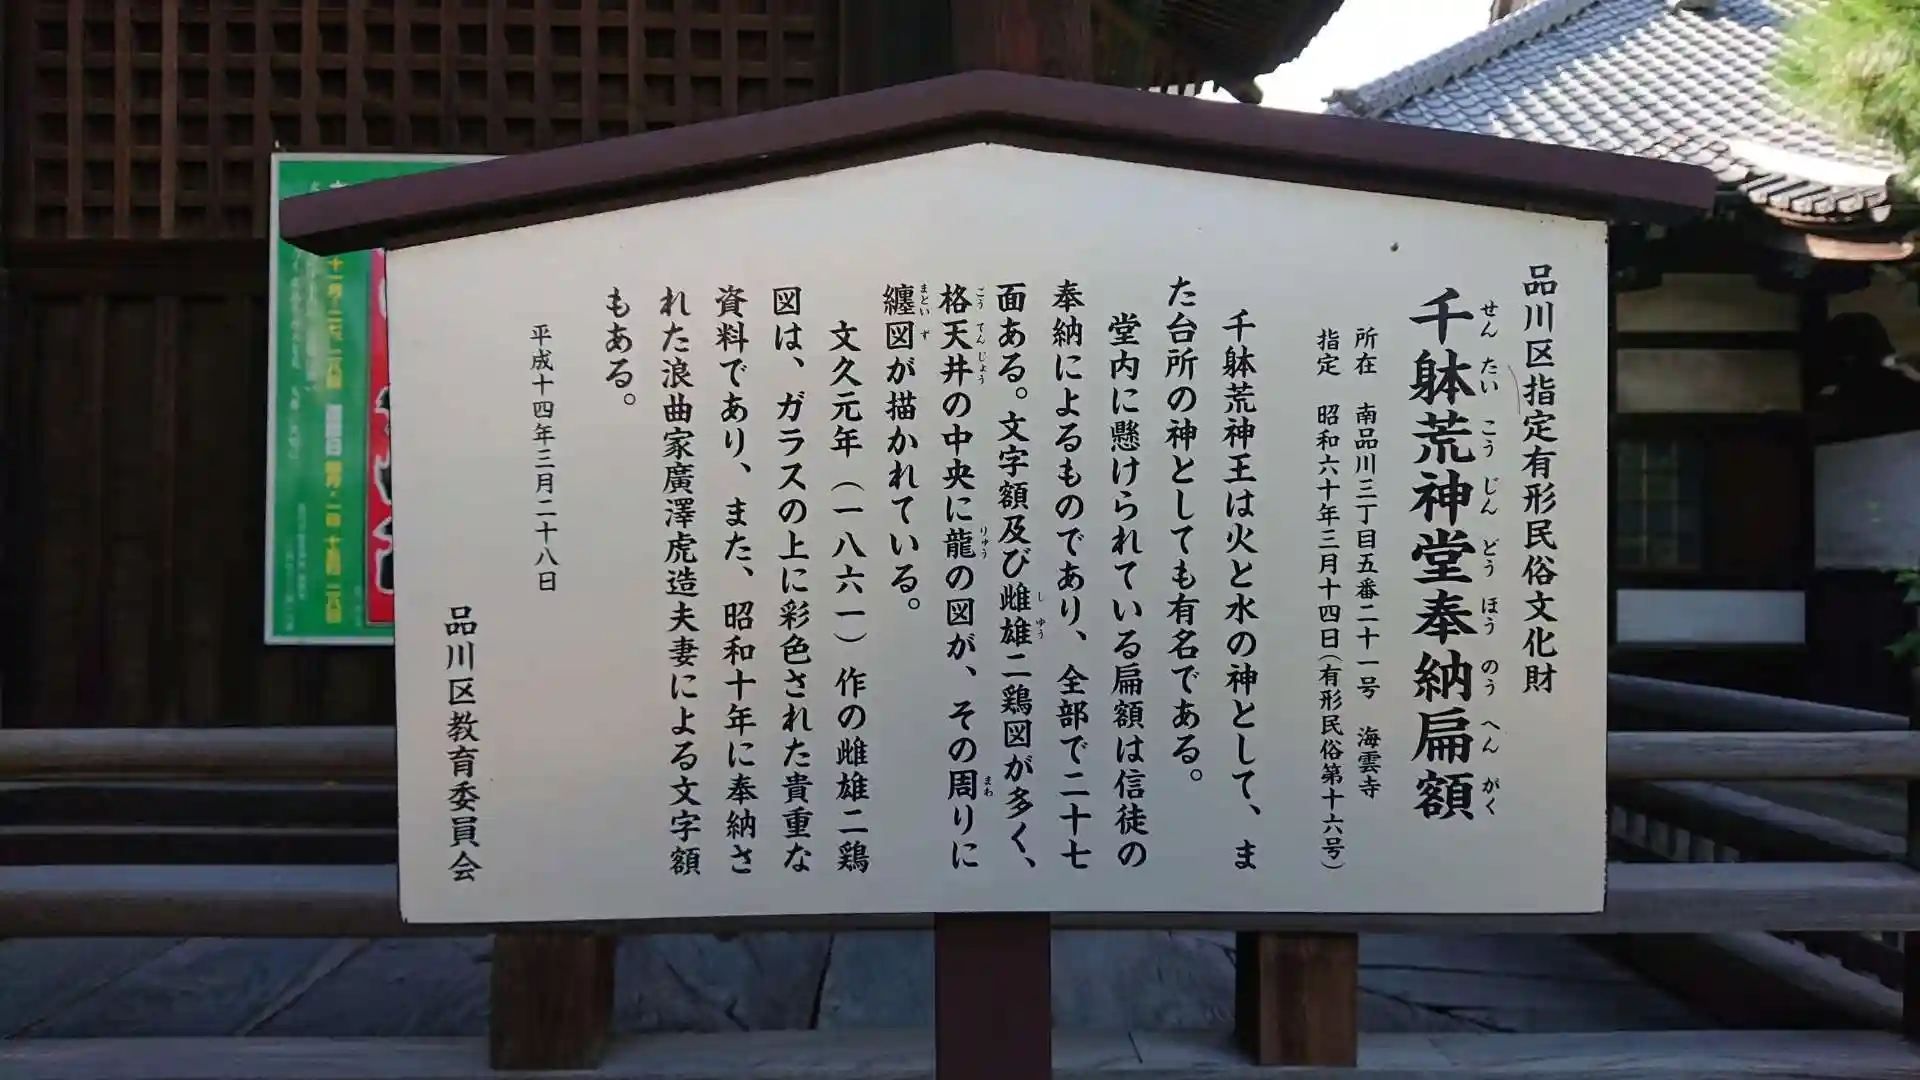 品川区指定有形民俗文化財
千躰荒神堂奉納扁額
せんたいこうじんどうほうのうへんがく
所在　南品川三丁目五番二十一号　海雲寺
指定　昭和六十年三月十四日（有形民俗第十六号）
千躰荒神王は火と水の神として、ま
た台所の神としても有名である。
堂内に懸けられている扁額は信徒の
奉納によるものであり、全部で二十七
面ある。文字額及び雌雄二鶏図が多く、
しゆう
格天井の中央に龍の図が、その周りに
こうてんじょう　りゅう　まわ
纏図が描かれている。
まといず
文久元年（一八六一）作の雌雄二鶏
図は、ガラスの上に彩色された貴重な
資料であり、また、昭和十年に奉納さ
れた浪曲家廣澤虎造夫妻による文字額
もある。
平成十四年三月二十八日
品川区教育委員会